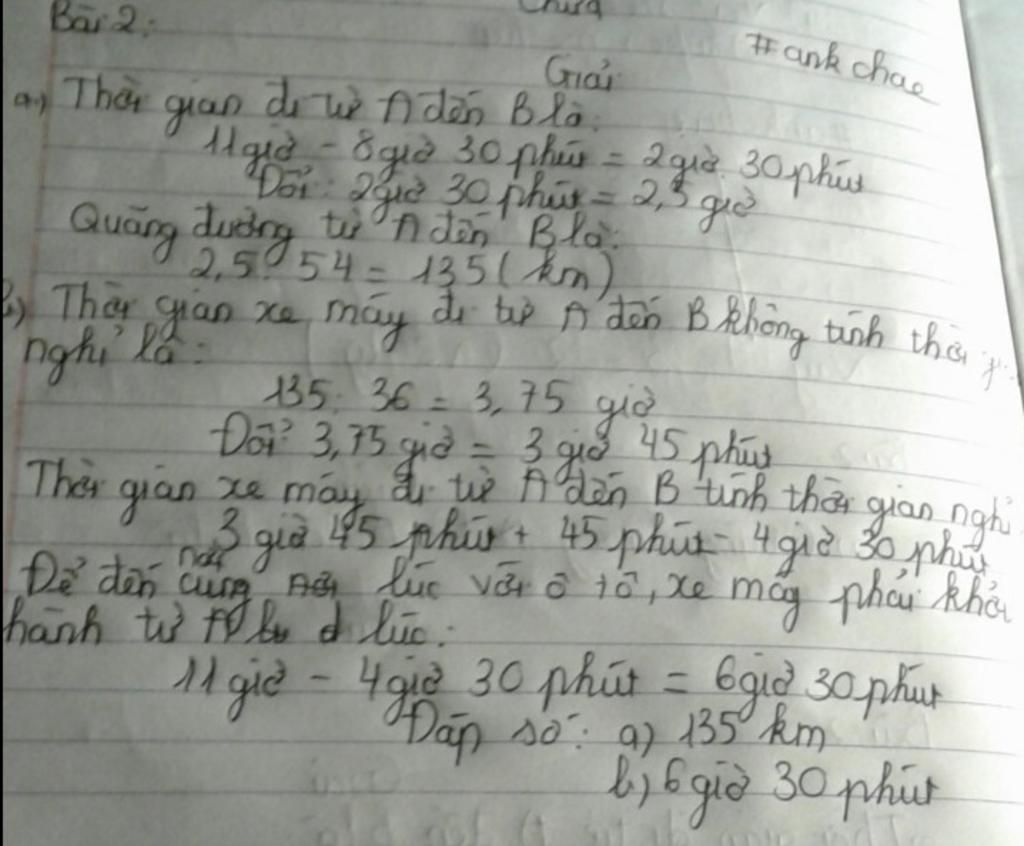 Chưa
Bài 2:
#ank chae
Giải
a,) Thời gian đi từ A đến B là:
11giờ - 8giờ 30 phút = 2giờ 30 phút
Đổi: 2giờ 30 phút = 2,5 giờ
Quãng đường từ A đến B là:
2,5 . 54 = 135 (km)
b,) Thời gian xe máy đi từ A đến B không tính thời
nghỉ là:
135 : 36 = 3,75 giờ
Đổi: 3,75 giờ = 3 giờ 45 phút
Thời gian xe máy đi từ A đến B tính thời gian nghỉ
3 giờ 45 phút + 45 phút = 4giờ 30 phút
Để đến cùng lúc với ô tô, xe máy phải khởi
hành từ A lúc:
11 giờ - 4giờ 30 phút = 6giờ 30 phút
Đáp số: a) 135 km
b,) 6giờ 30 phút